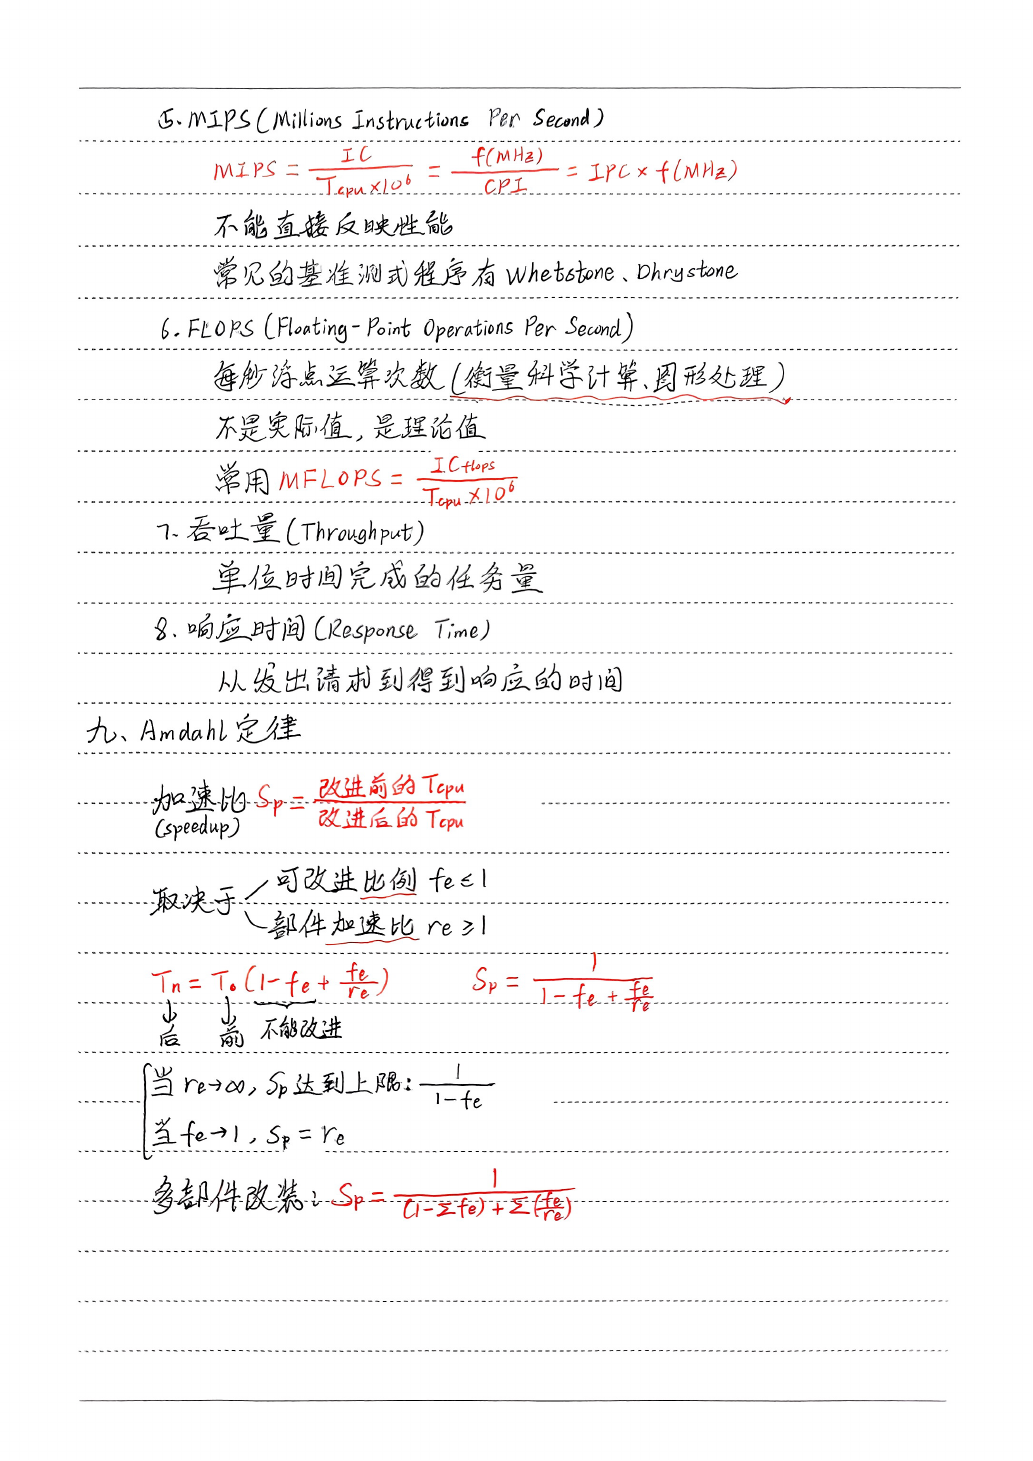 5. MIPS (Millions Instructions Per Second)
MIPS = IC / (Tcpu × 10⁶) = f(MHz) / CPI = IPC × f(MHz)
不能直接反映性能
常见的基准测试程序有 Whetstone、Dhrystone
6. FLOPS (Floating-Point Operations Per Second)
每秒浮点运算次数(衡量科学计算、图形处理)
不是实际值,是理论值
常用 MFLOPS = ICflops / (Tcpu × 10⁶)
7. 吞吐量 (Throughput)
单位时间完成的任务量
8. 响应时间 (Response Time)
从发出请求到得到响应的时间
九、Amdahl 定律
加速比 Sp = 改进前的 Tcpu / 改进后的 Tcpu
(speedup)
取决于
可改进比例 fe ≤ 1
部件加速比 re ≥ 1
Tn = T₀ (1 - fe + fe/re) Sp = 1 / (1 - fe + fe/re)
后 前 不能改进
当 re→∞, Sp 达到上限: 1 / (1 - fe)
当 fe→1, Sp = re
多部件改装: Sp = 1 / ((1 - Σfe) + Σ(fe/re))